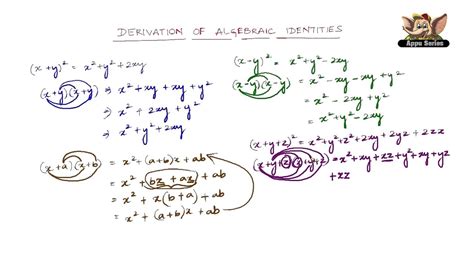 DERIVATION OF ALGEBRAIC IDENTITIES
Appu Series
(x+y)² = x²+y²+2xy
(x+y)(x+y) ⇒ x²+xy+xy+y²
⇒ x²+2xy+y²
⇒ x²+y²+2xy
(x-y)² = x²+y²-2xy
(x-y)(x-y) = x²-xy-xy+y²
= x²-2xy+y²
= x²+y²-2xy
(x+a)(x+b) = x²+(a+b)x+ab
= x²+bx+ax+ab
= x²+x(b+a)+ab
= x²+(a+b)x+ab
(x+y+z)² = x²+y²+z²+2xy+2yz+2zx
(x+y+z)(x+y+z) = x²+xy+xz+y²+xy+yz
+xz